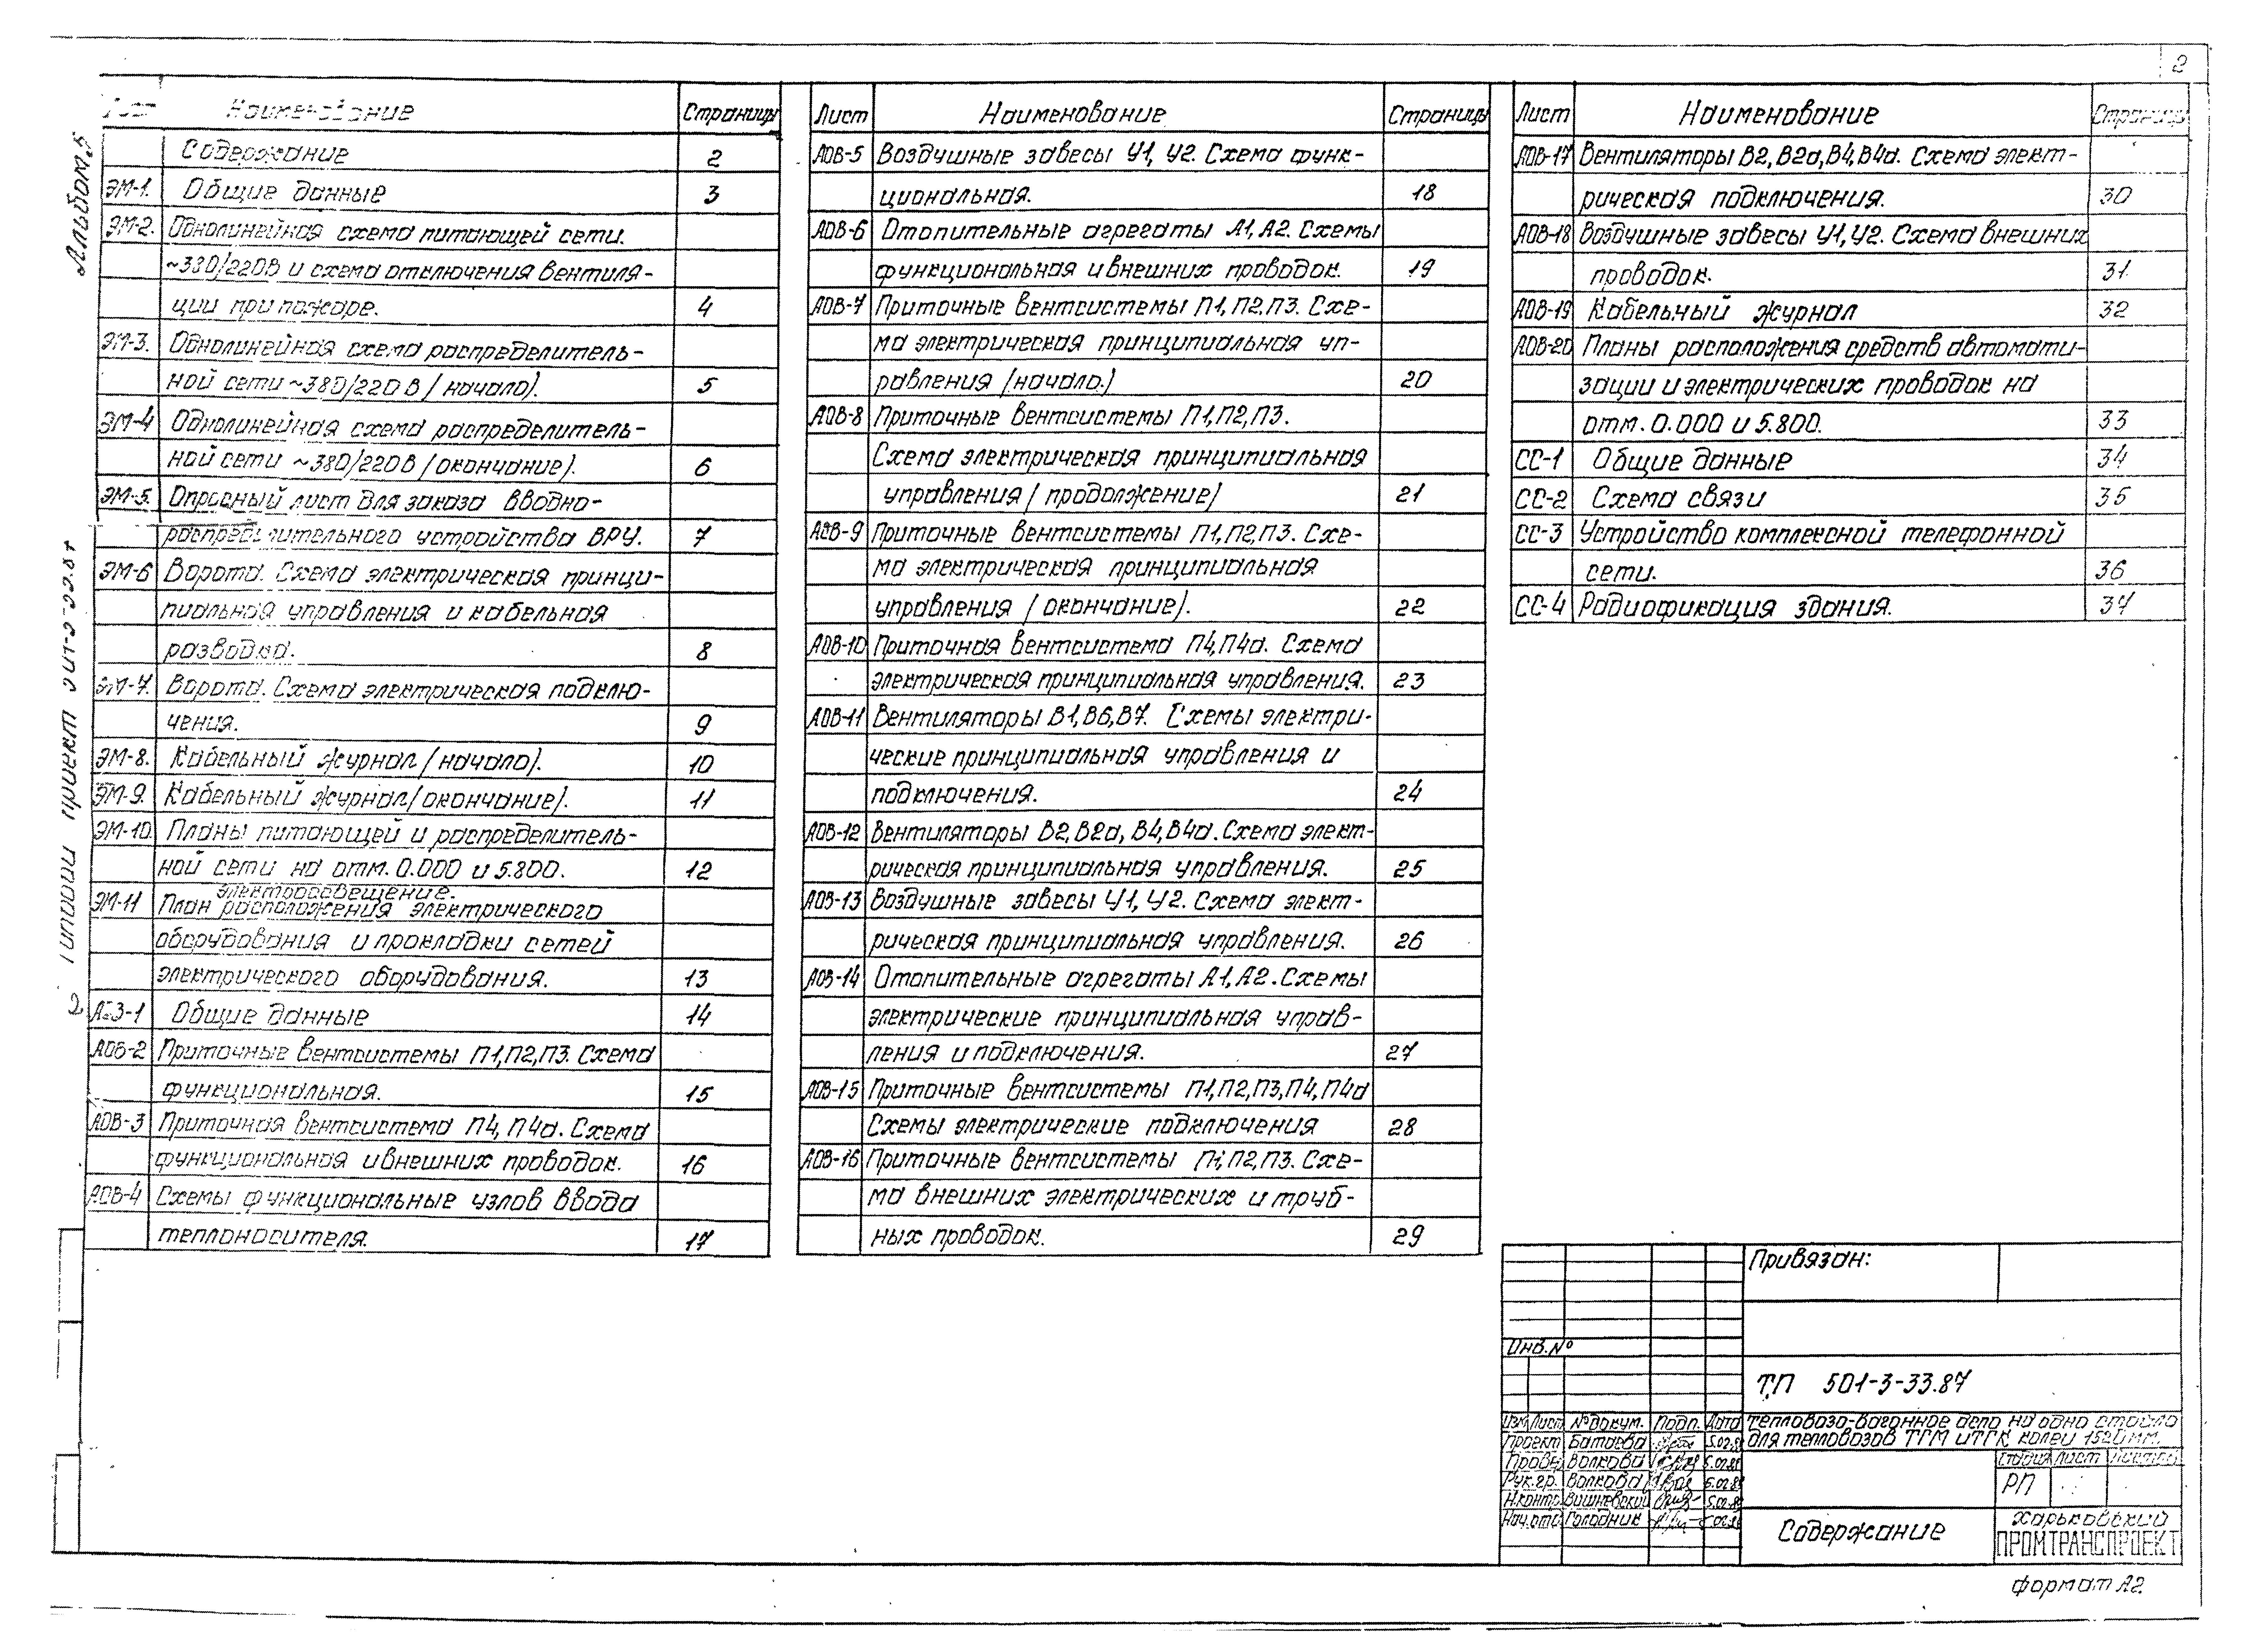 2
Альбом 5
Типовой проект 501-3-33.87
Лист Наименование Страницы
Содержание 2
ЭМ-1. Общие данные 3
ЭМ-2. Однолинейная схема питающей сети.
~380/220В и схема отключения вентиля-
ции при пожаре. 4
ЭМ-3. Однолинейная схема распределитель-
ной сети ~380/220В (начало). 5
ЭМ-4 Однолинейная схема распределитель-
ной сети ~380/220В (окончание). 6
ЭМ-5. Опросный лист для заказа вводно-
распределительного устройства ВРУ. 7
ЭМ-6 Ворота. Схема электрическая принци-
пиальная управления и кабельная
разводка. 8
ЭМ-7. Ворота. Схема электрическая подклю-
чения. 9
ЭМ-8. Кабельный журнал (начало). 10
ЭМ-9. Кабельный журнал (окончание). 11
ЭМ-10. Планы питающей и распределитель-
ной сети на отм. 0.000 и 5.800. 12
электроосвещение.
ЭМ-11 План расположения электрического
оборудования и прокладки сетей
электрического оборудования. 13
АОВ-1 Общие данные 14
АОВ-2 Приточные вентсистемы П1,П2,П3. Схема
функциональная. 15
АОВ-3 Приточная вентсистема П4, П4а. Схема
функциональная и внешних проводок. 16
АОВ-4 Схемы функциональные узлов ввода
теплоносителя. 17
Лист Наименование Страницы
АОВ-5 Воздушные завесы У1, У2. Схема функ-
циональная. 18
АОВ-6 Отопительные агрегаты А1, А2. Схемы
функциональная и внешних проводок. 19
АОВ-7 Приточные вентсистемы П1, П2, П3. Схе-
ма электрическая принципиальная уп-
равления (начало.) 20
АОВ-8 Приточные вентсистемы П1,П2,П3.
Схема электрическая принципиальная
управления (продолжение) 21
АОВ-9 Приточные вентсистемы П1,П2,П3. Схе-
ма электрическая принципиальная
управления (окончание). 22
АОВ-10 Приточная вентсистема П4,П4а. Схема
электрическая принципиальная управления. 23
АОВ-11 Вентиляторы В1,В6,В7. Схемы электри-
ческие принципиальная управления и
подключения. 24
АОВ-12 Вентиляторы В2,В2а, В4,В4а. Схема элект-
рическая принципиальная управления. 25
АОВ-13 Воздушные завесы У1, У2. Схема элект-
рическая принципиальная управления. 26
АОВ-14 Отопительные агрегаты А1, А2. Схемы
электрические принципиальная управ-
ления и подключения. 27
АОВ-15 Приточные вентсистемы П1,П2,П3,П4,П4а
Схемы электрические подключения 28
АОВ-16 Приточные вентсистемы П1,П2,П3. Схе-
ма внешних электрических и труб-
ных проводок. 29
Лист Наименование Страницы
АОВ-17 Вентиляторы В2, В2а, В4, В4а. Схема элект-
рическая подключения. 30
АОВ-18 Воздушные завесы У1, У2. Схема внешних
проводок. 31
АОВ-19 Кабельный журнал 32
АОВ-20 Планы расположения средств автомати-
зации и электрических проводок на
отм. 0.000 и 5.800. 33
СС-1 Общие данные 34
СС-2 Схема связи 35
СС-3 Устройство комплексной телефонной
сети. 36
СС-4 Радиофикация здания. 37
Привязан:
Инв.№
ТП 501-3-33.87
Изм Лист № докум. Подп. Дата
Тепловозо-вагонное депо на одно стойло
для тепловозов ТГМ и ТГК колеи 1520мм.
Проект Батаева
Провер Волкова
Рук.гр. Волкова
Н.контр Вишневский
Нач.отд. Голодник
Стадия Лист Листов
РП
Содержание
Харьковский
ПРОМТРАНСПРОЕКТ
формат А2